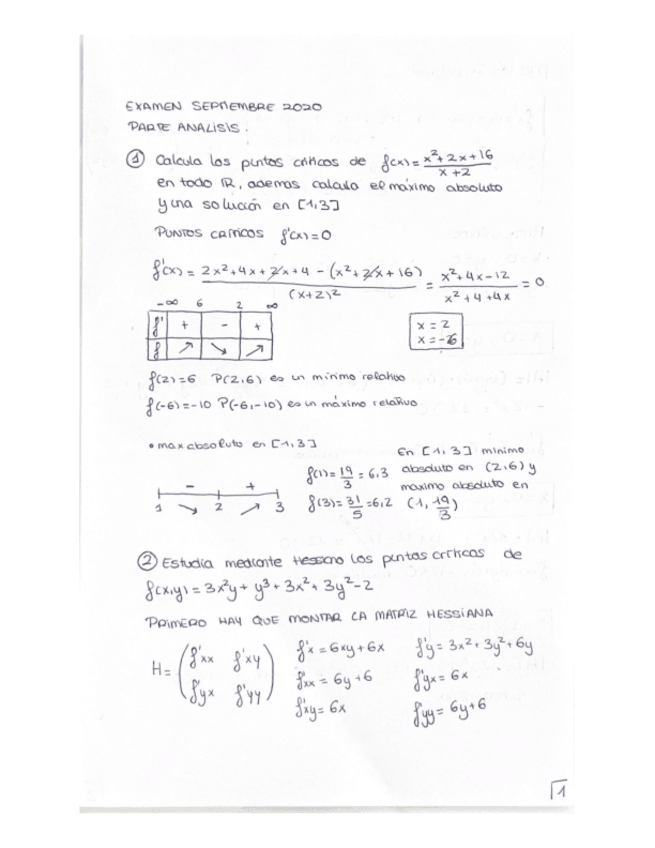 EXAMEN SEPTIEMBRE 2020
PARTE ANALISIS.
① Calcula los puntos criticos de f(x) = x²+2x+16 / x+2
en todo ℝ, ademas calcula el máximo absoluto
y una solución en [1,3]
PUNTOS CRITICOS f'(x)=0
f'(x) = 2x²+4x+2x+4 - (x²+2x+16) / (x+2)² = x²+4x-12 / x²+4+4x = 0
-∞ 6 2 ∞
f' + - +
f ↗ ↘ ↗
x = 2
x = -6
f(2)=6 P(2,6) es un mínimo relativo
f(-6)=-10 P(-6,-10) es un máximo relativo
• max absoluto en [1,3]
- +
1 ↘ 2 ↗ 3
f(1)= 19/3 = 6,3
f(3)= 31/5 = 6,2
En [1,3] minimo
absoluto en (2,6) y
maximo absoluto en
(1, 19/3)
② Estudia mediante Hessiano los puntos criticos de
f(x,y) = 3x²y + y³ + 3x² + 3y² - 2
PRIMERO HAY QUE MONTAR LA MATRIZ HESSIANA
H = ( f'xx f'xy
f'yx f'yy )
f'x = 6xy + 6x
f'xx = 6y + 6
f'xy = 6x
f'y = 3x² + 3y² + 6y
f'yx = 6x
f'yy = 6y + 6
1